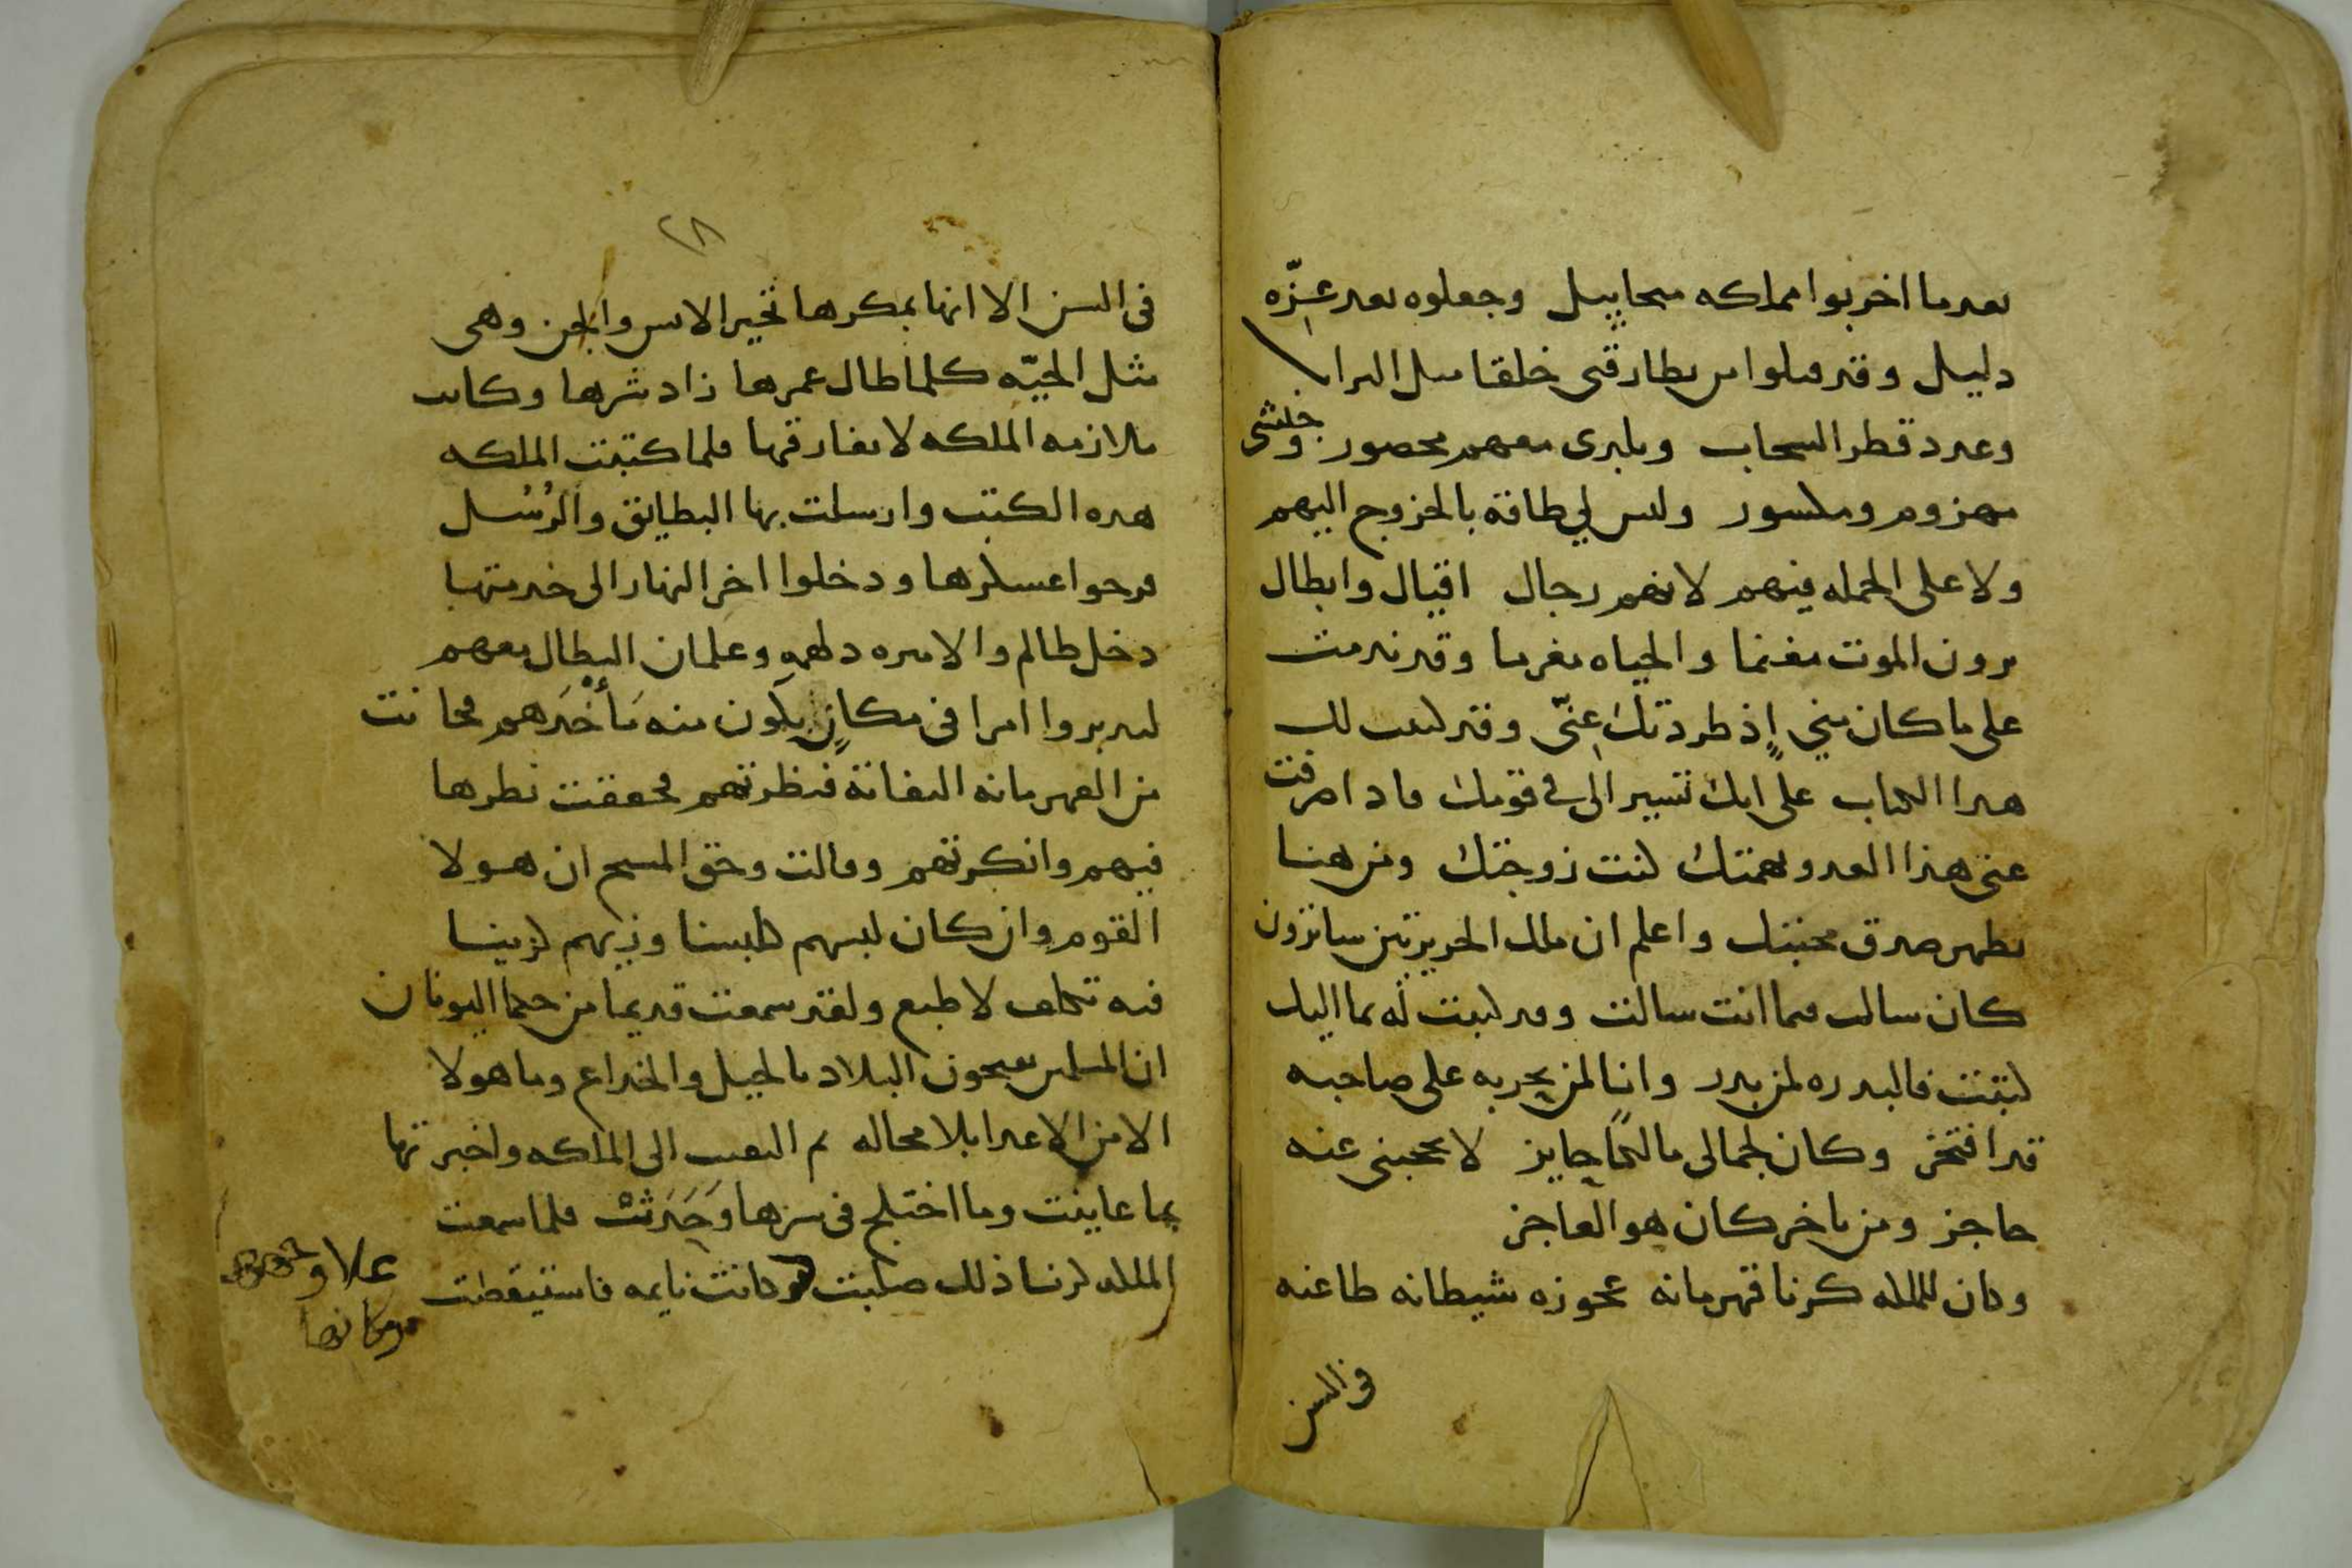 بعد ما اخربوا مملكه ميخاييل وجعلوه بعد عزّه
دليل وقد قتلوا من بطارقتى خلقا مثل التراب
وعدد قطر السحاب وبلدى معهم محصور وجيشى
مهزوم ومكسور وليس لي طاقة بالخروج اليهم
ولا على الحمله فيهم لانهم رجال اقيال وابطال
يرون الموت مغنما والحياه مغرما وقد ندمت
على ما كان مني إذ طردتك عنّى وقد كتبت لك
هدا الكتاب على انك تسير الى في قومك فادا صرفت
عنى هذا العدو بهمتك كنت زوجتك ومن هنا
يظهر صدق محبتك واعلم ان ملك الجزيرتين
كان سالك فيما انت سالت وقد كتبت له بما اليك
كتبت فالبدره لمن بدر وانا لمن يجرى به على صاحبه
قد افتخر وكان لجمالى مالكا حايز لا يحجبنى عنه
حاجز ومن تاخر كان هو العاجز
وكان للملكه كرنا قهرمانه عجوزه شيطانه طاعنه
فى السن
٢٨
فى السن الا انها بمكرها تحير الانس والجن وهى
مثل الحيّه كلما طال عمرها زاد شرها وكانت
ملازمه الملكه لا تفارقها فلما كتبت الملكه
هده الكتب وارسلت بها البطايق والرُسُل
فرحوا عسكرها ودخلوا اخر النهار الى خدمتها
دخل ظالم والاميره دلهمه وغلمان البطال معهم
ليدبروا امرا فى مكانٍ يكون منه مَأخَدهم فحانت
من القهرمانه التفاتة فنظرتهم فحققت نظرها
فيهم وانكرتهم وقالت وحق المسيح ان هولا
القوم وان كان لبسهم كلبسنا وزيهم كزينا
فيه تكلف لا طبع ولقد سمعت قديما من حكما اليونان
ان المسلمين يفتحون البلاد بالحيل والخداع وما هولا
الا من الاعدا بلا محاله ثم التفتت الى الملكه واخبرتها
بما عاينت وما اختلج فى سرها وَحَدَثتْ فلما سمعت
الملكه كرنا ذلك صلبت وكانت نايمه فاستيقظت